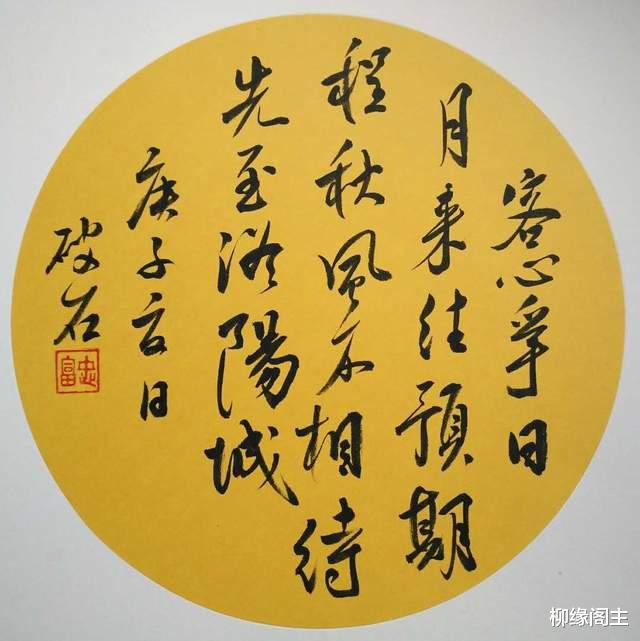 客心争日
月来往预期
程秋风不相待
先至洛陽城
庚子夏日
破石
忠富
柳缘阁主